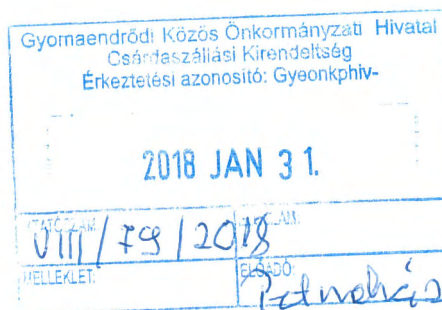 Gyomaendrődi Közös Önkormányzati Hivatal
Csárdaszállási Kirendeltség
Érkeztetési azonosító: Gyeonkphiv-
2018 JAN 31.
VIII / 79 / 2018
MELLÉKLET: ELŐADÓ: